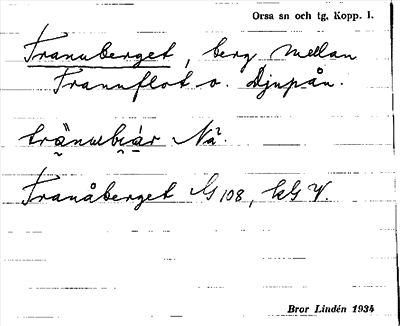 Orsa sn och tg, Kopp. l.
Trannberget, berg mellan
Trannflot o. Djupån.
Nä².
Tranåberget G 108, kG V.
Bror Lindén 1934